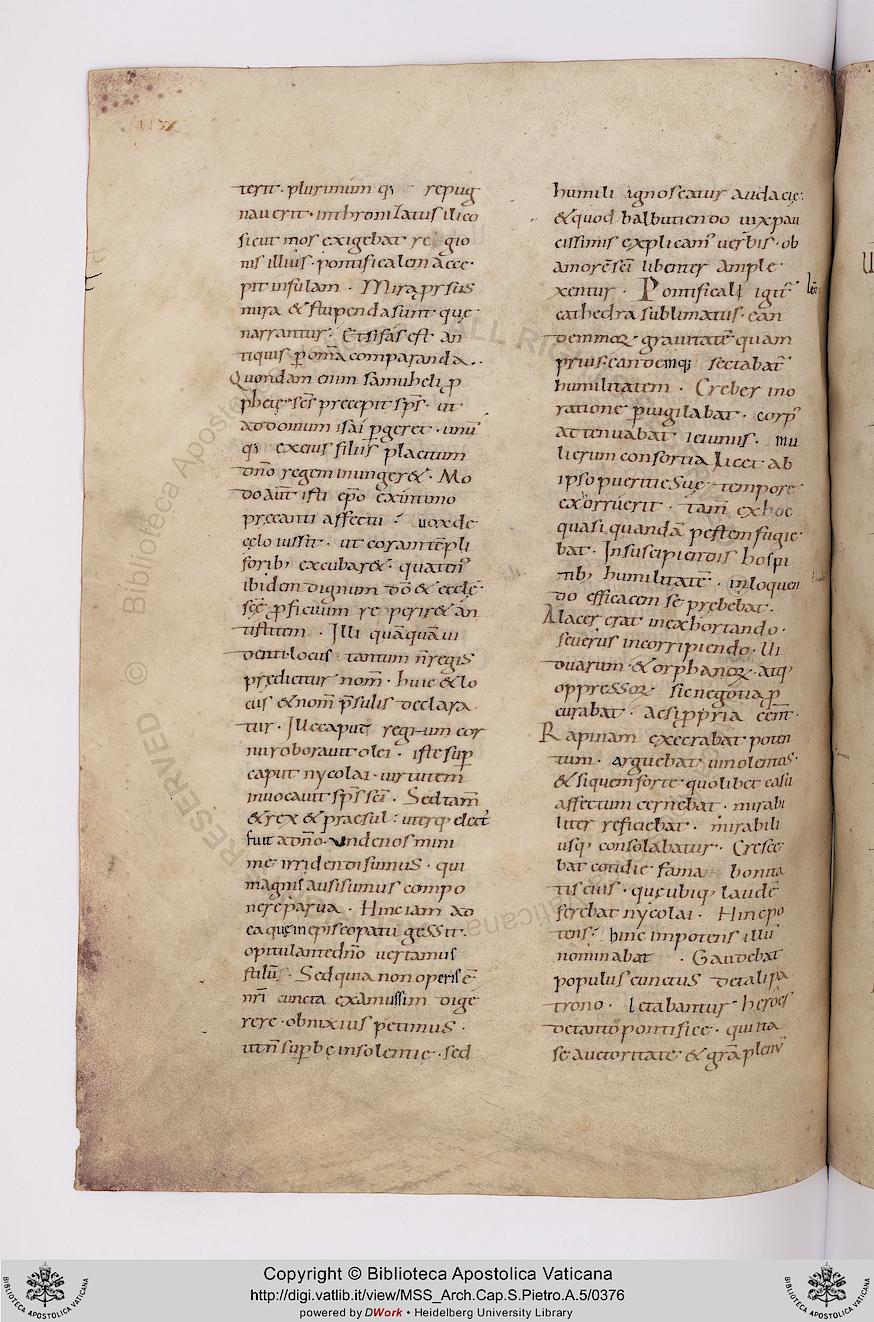 terit · plurimum q; repug
nauerit · inthronizatus ilico
sicut mos exigebat re gio
nis illius · pontificalem acce·
pit insulam · Mira prsus
mira & stupenda sunt · quę
narrantur · Et si fas est · an
tiquis p om̄a comparanda ..
Quondam enim samuheli p
phetę scs̄ precepit sp̄s · ut
ad domum isai pgeret · unū
q; ex eius filiis placitum
dn̄o regem inunger& · Mo
do aut̄ isti ep̄o ex intimo
precanti affectu · uox de
cęlo iussit · ut coram tēpli
forib; excubar& · quaten'
ibidem dignum dō & ecclę
scę pficuum re perir& an
tistitem · Illi quāquā ui
denti · locus tantum n̄ regis
predicitur nom̄ · huic & lo
cus & nom̄ p̄sulis declara
tur · Ille caput regi-um cor
nu roborauit olei · iste sup
caput nycolai · uirtutem
inuocauit sp̄s scī · Sed tam̄
& rex & praesul : uterq; elect'
fuit a dn̄o · unde nos mini
me irridendi sumus · qui
magnis ausi sumus compo
nere parua · Hinc iam ad
ea quę in episcopatu gessit ·
opitulante dn̄o uertamus
stilū · Sed quia non operis ē
nr̄i cuncta examussim dige
rere · obnixius petimus ·
ut n̄ supbę insolentię · sed
humili ignoscatur audacię ·
& quod balbutiendo uix pau
cissimis explicam' uerbis · ob
amorē scī libenter ample
xentur · Pontificali igit̄
cathedra sublimatus · ean
demmor grauitatē quam
prius · eandemq; sectabat̄
humilitatem · Creber in o
ratione puigilabat · corp'
attenuabat ieiuniis · mu
lierum consortia licet ab
ipso pueritię suę tempore
exorruerit · tam̄ ex hoc
quasi quandā pestem fugie
bat · In suscipiendis hospi
tib; humilitatē · in loquen
do efficacem se prebebat ·
Alacer erat in exhortando ·
seuerus in corripiendo · Ui
duarum · & orphanor · atq;
oppressor sic negotia p
curabat · ac si ppria eēnt ·
Rapinam execrabat poten
tum · arguebat uiolentos ·
& si quem forte quolibet casu
affectum cernebat · mirabi
liter reficiebat · mirabili
usq; consolabatur · Cresce
bat cotidie fama bonita
tis eius · quę ubiq; laudē
ferebat nycolai · Hinc po
tens · hinc impotens illū
nominabat · Gaudebat
populus cunctus de tali pa
trono · letabantur heroes
de tanto pontifice · qui ita
se auctoritate & gr̄a plenū
Copyright © Biblioteca Apostolica Vaticana
http://digi.vatlib.it/view/MSS_Arch.Cap.S.Pietro.A.5/0376
powered by DWork • Heidelberg University Library